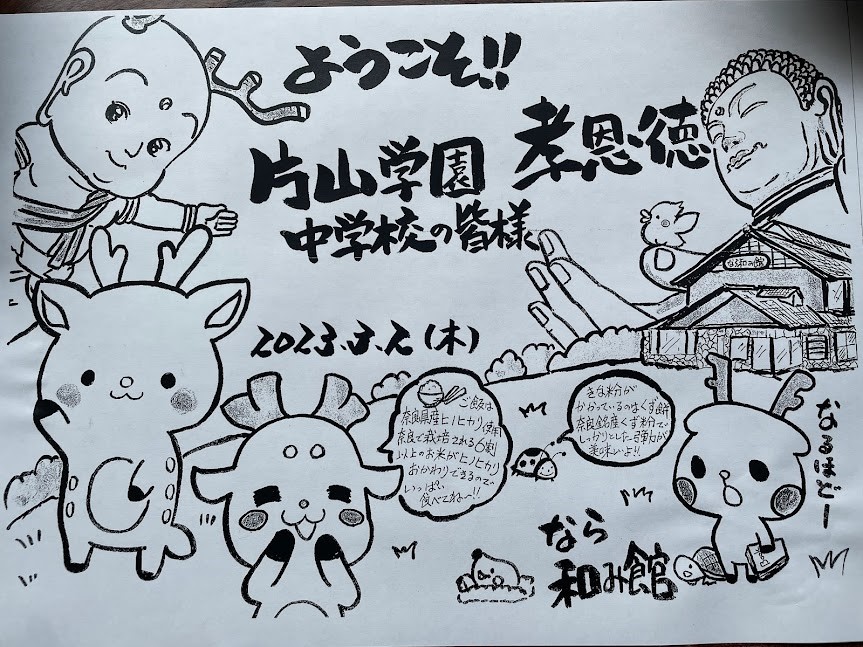 ようこそ!!
孝恩徳
片山学園
中学校の皆様
なら和み館
2023.3.2(木)
ご飯は
奈良県産ヒノヒカリ使用
奈良で栽培される6割
以上のお米がヒノヒカリ
おかわりできるので
いっぱい
食べてね〜!!
きな粉が
かかっているのはくず餅
奈良銘産くず粉で
しっかりとした弾力が
美味いよ!!
なるほどー
なら
和み館